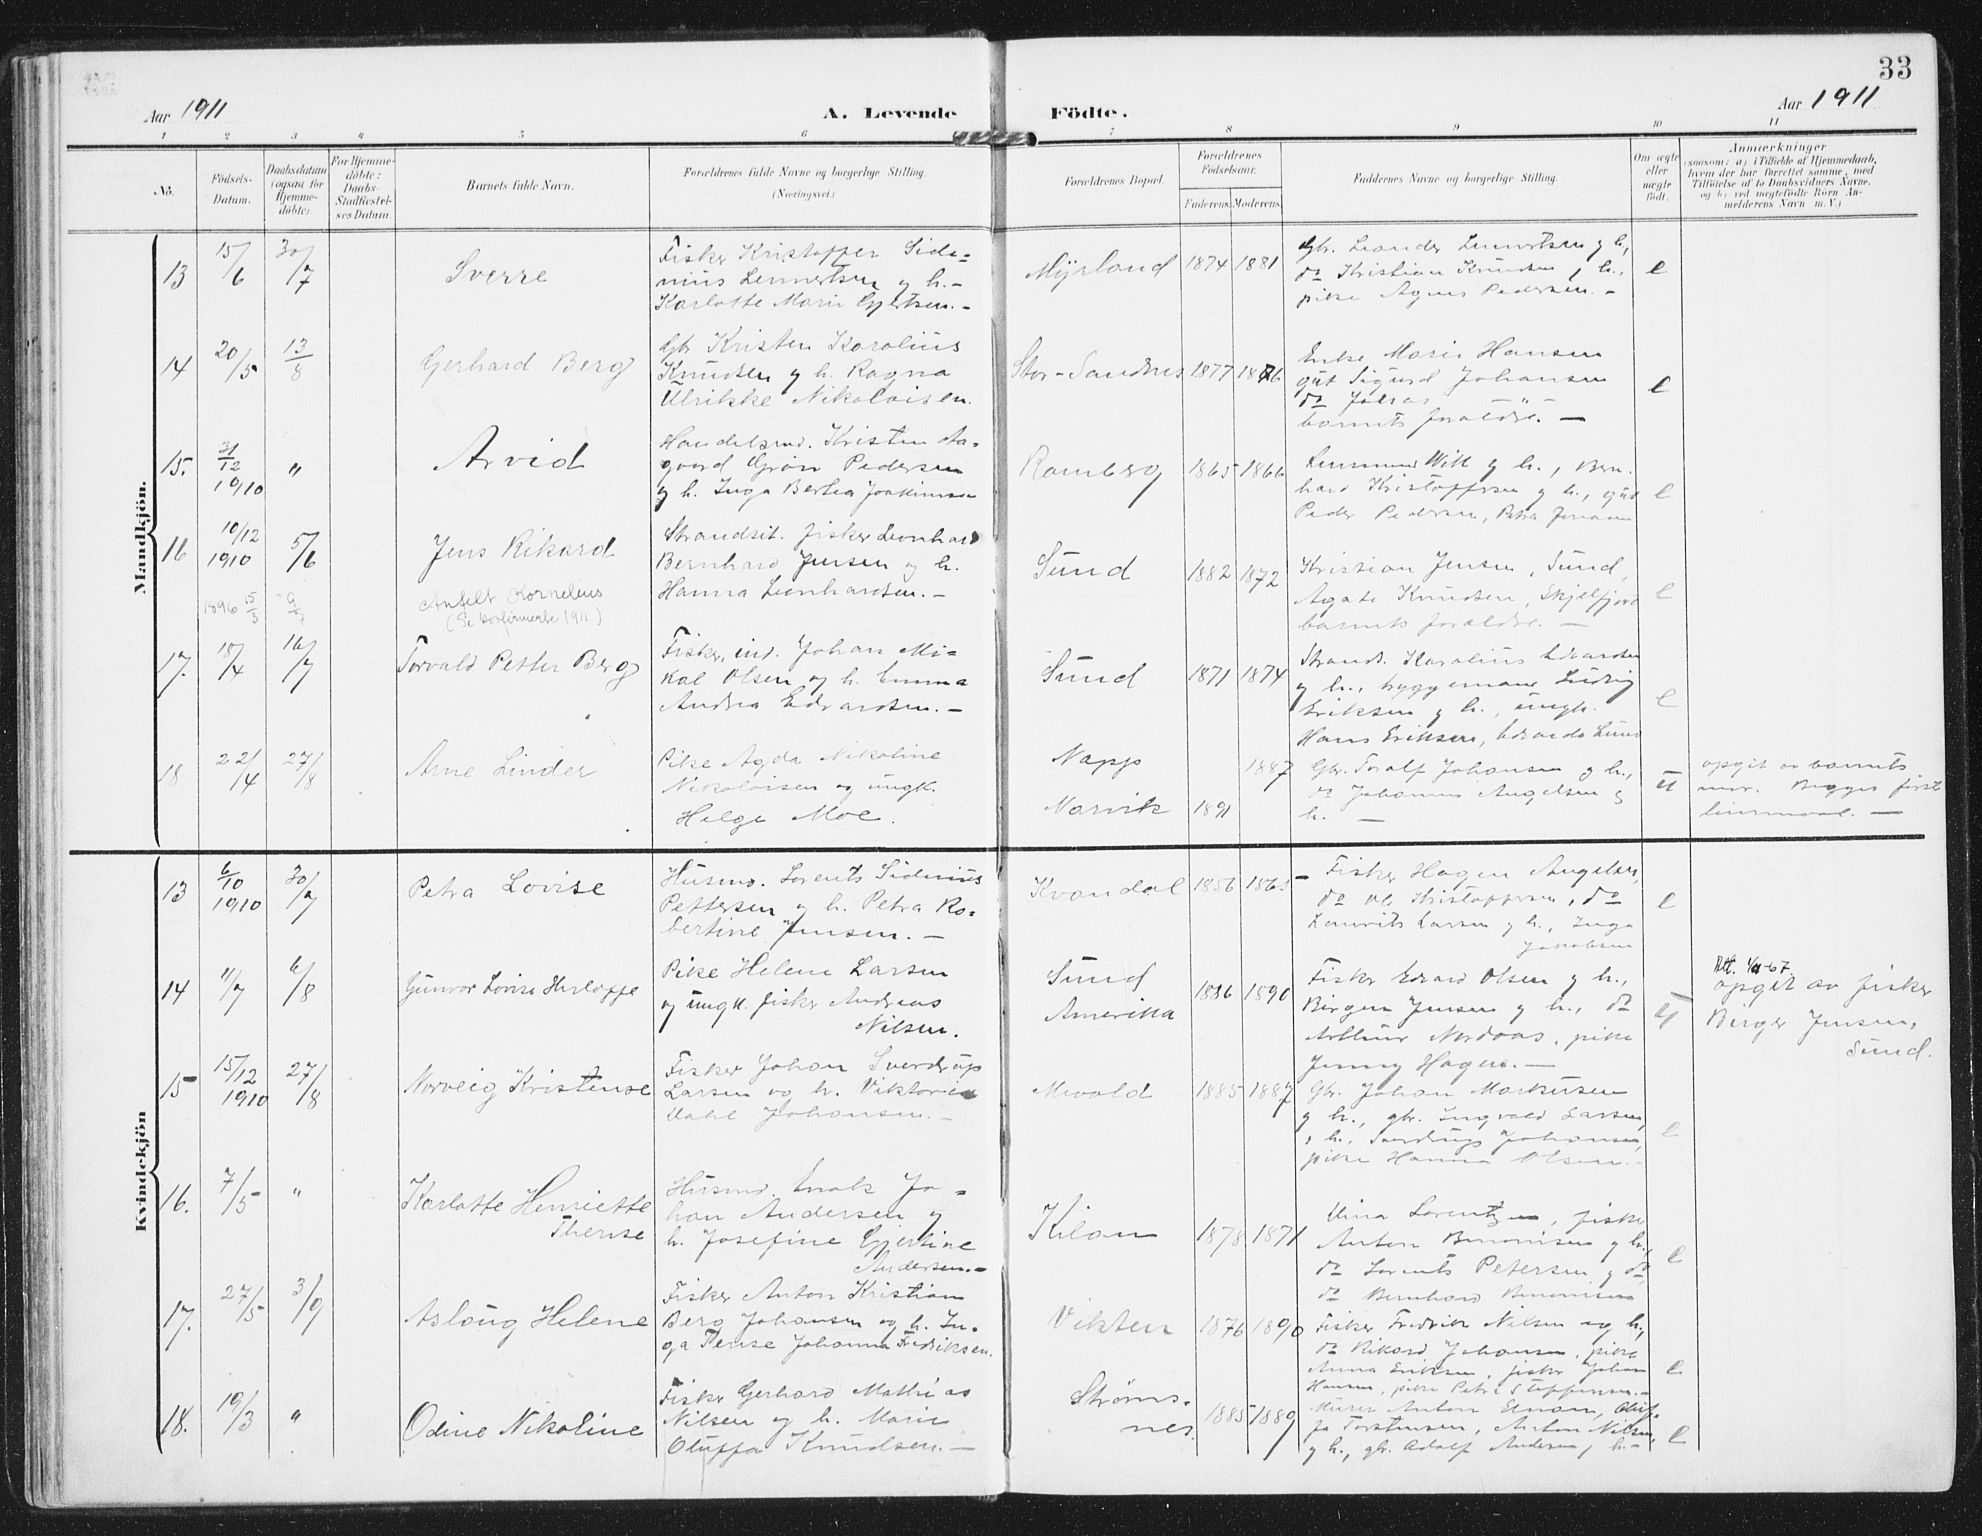 33
Aar 1911
A. Levende
Födte.
Aar 1911
1 2 3 4 5 6 7 8 9 10 11
No.
Födsels-Datum.
Daabsdatum (ogsaa for Hjemme-döbte)
For Hjemme-döbte: Daabs-Stadfæstel-ses Datum.
Barnets fulde Navn.
Forældrenes fulde Navne og borgerlige Stilling.
(Næringsvei.)
Forældrenes Bopæl.
Forældrenes Födselsaar.
Faderens. Moderens.
Faddernes Navne og borgerlige Stilling.
Om ægte eller uægte födt.
Anmærkninger
(saasom: a) i Tilfælde af Hjemmedaab, hvem der har forrettet samme, med Tilföielse af to Daabsvidners Navne, og b) ved uægtefödte Börn An-melderens Navn m.V.)
Mandkjön.
13 15/6 30/7 Sverre
Fisker Kristoffer Side=
nius Lennertsen og h.-
Karlotte Marie Gjertsen.-
Myrland 1874 1881
Gbr. Leander Lennertsen og h.,
do Kristian Knudsen, h.,
pike Agnes Pedersen.-
e
14 20/5 13/8 Gerhard Berg
Gbr Kristen Karolius
Knudsen og h. Ragna
Ulrikke Nikolaisen.
Stor-Sandnes 1877 1876
Enke Marie Hansen
gut Sigurd Johansen
do
barnets forældre. -
e
15. 31/12 1910 " Arvid
Handelsmd. Kristen Aa-
gaard Grön Pedersen
og h. Inga Bertea Joakimsen
Ramberg 1865 1866
Witt og h., Bern-
hard Kristoffersen og h., gut
Peder Pedersen, Petra
e
16 10/12 1910 5/6 Jens Rikard
Strandsit. fisker Leonhard
Bernhard Jensen og h.
Hanna Leonhardsen.-
Sund 1882 1872
Kristian Jensen, Sund,
Agate Knudsen, Skjelfjord
barnets forældre. -
e
1896 15/3 Kornelius
(Se konfirmerte 1911)
17. 18/4 16/7 Torvald Petter Berg
Fisker, ind. Johan Mi=
kal Olsen og h. Emma
Andrea Edvardsen.-
Sund 1871 1874
Strands. Karolius Edvardsen
og h., byggemand Ludvig
Eriksen og h., ungk.
Hans Eriksen, Sund
e
18 22/4 27/8 Arne Linder
Pike Agda Nikoline
Nikolaisen og ungk.
Helge Moe.
Napp
Narvik 1891 1887
Gbr. Toralf Johansen og h.,
do Johannes Angelsen og
h. -
u
opgit av barnets
mor. Begges første
leiermaal. -
Kvindekjön
13 6/10 1910 30/7 Petra Lovise
Husmd. Lorents Sidenius
Pettersen og h. Petra Ro-
bertine Jensen. -
Kvandal 1856 1865
Fisker Hagen Angelsen,
do Ole Kristoffersen, do
Laurits Larsen og h., Inga
Jakobsen
e
14 11/7 6/8 Gunvor Lovise
Pike Helene Larsen
og ungk. fisker Andreas
Nilsen.
Sund
Amerika 1886 1890
Fisker Edvard Olsen og h.,
Birger Jensen og h., do
Arthur Nordaas, pike
Jenny Hagen. -
u
opgit av fisker
Birger Jensen,
Sund.
15 15/12 1910 27/8 Norveig Kristense
Fisker Johan Sverdrup
Larsen og h. Viktoria
Dahl Johansen. -
Mevold 1885 1887
Gbr. Johan Markusen
og h., gbr. Ingvald Larsen
og h., Sverdrup Johansen,
pike Hanna Olsen.-
e
16. 7/5 " Karlotte Henriette
Therese
Husmd. Enok Jo-
han Andersen og
h. Josefine Gjertine
Andersen.-
Kilan 1878 1871
Lorentzen, fisker
Anton Benonisen og h.,
do Lorents Petersen og do,
do Bernhard Benonisen
e
17. 27/5 3/9 Aslaug Helene
Fisker Anton Kristian
Berg Johansen og h. In-
ga Terese Johanna Fredriksen.
Vikten 1876 1890
Fisker Fredrik Nilsen og h.,
do Rikard Johansen, pike
Anna Eriksen, fisker Johan
Hansen, pike Petra Steffensen.-
e
18. 19/3 " Odine Nikoline
Fisker Gerhard Mathias
Nilsen og h. Marie
Oluffa Knudsen. -
Strøms-
nes 1885 1889
Murer Anton Oluf-
fa Torstensen, Anton Nilsen
og h., gbr. Adolf Andersen, h.-
e